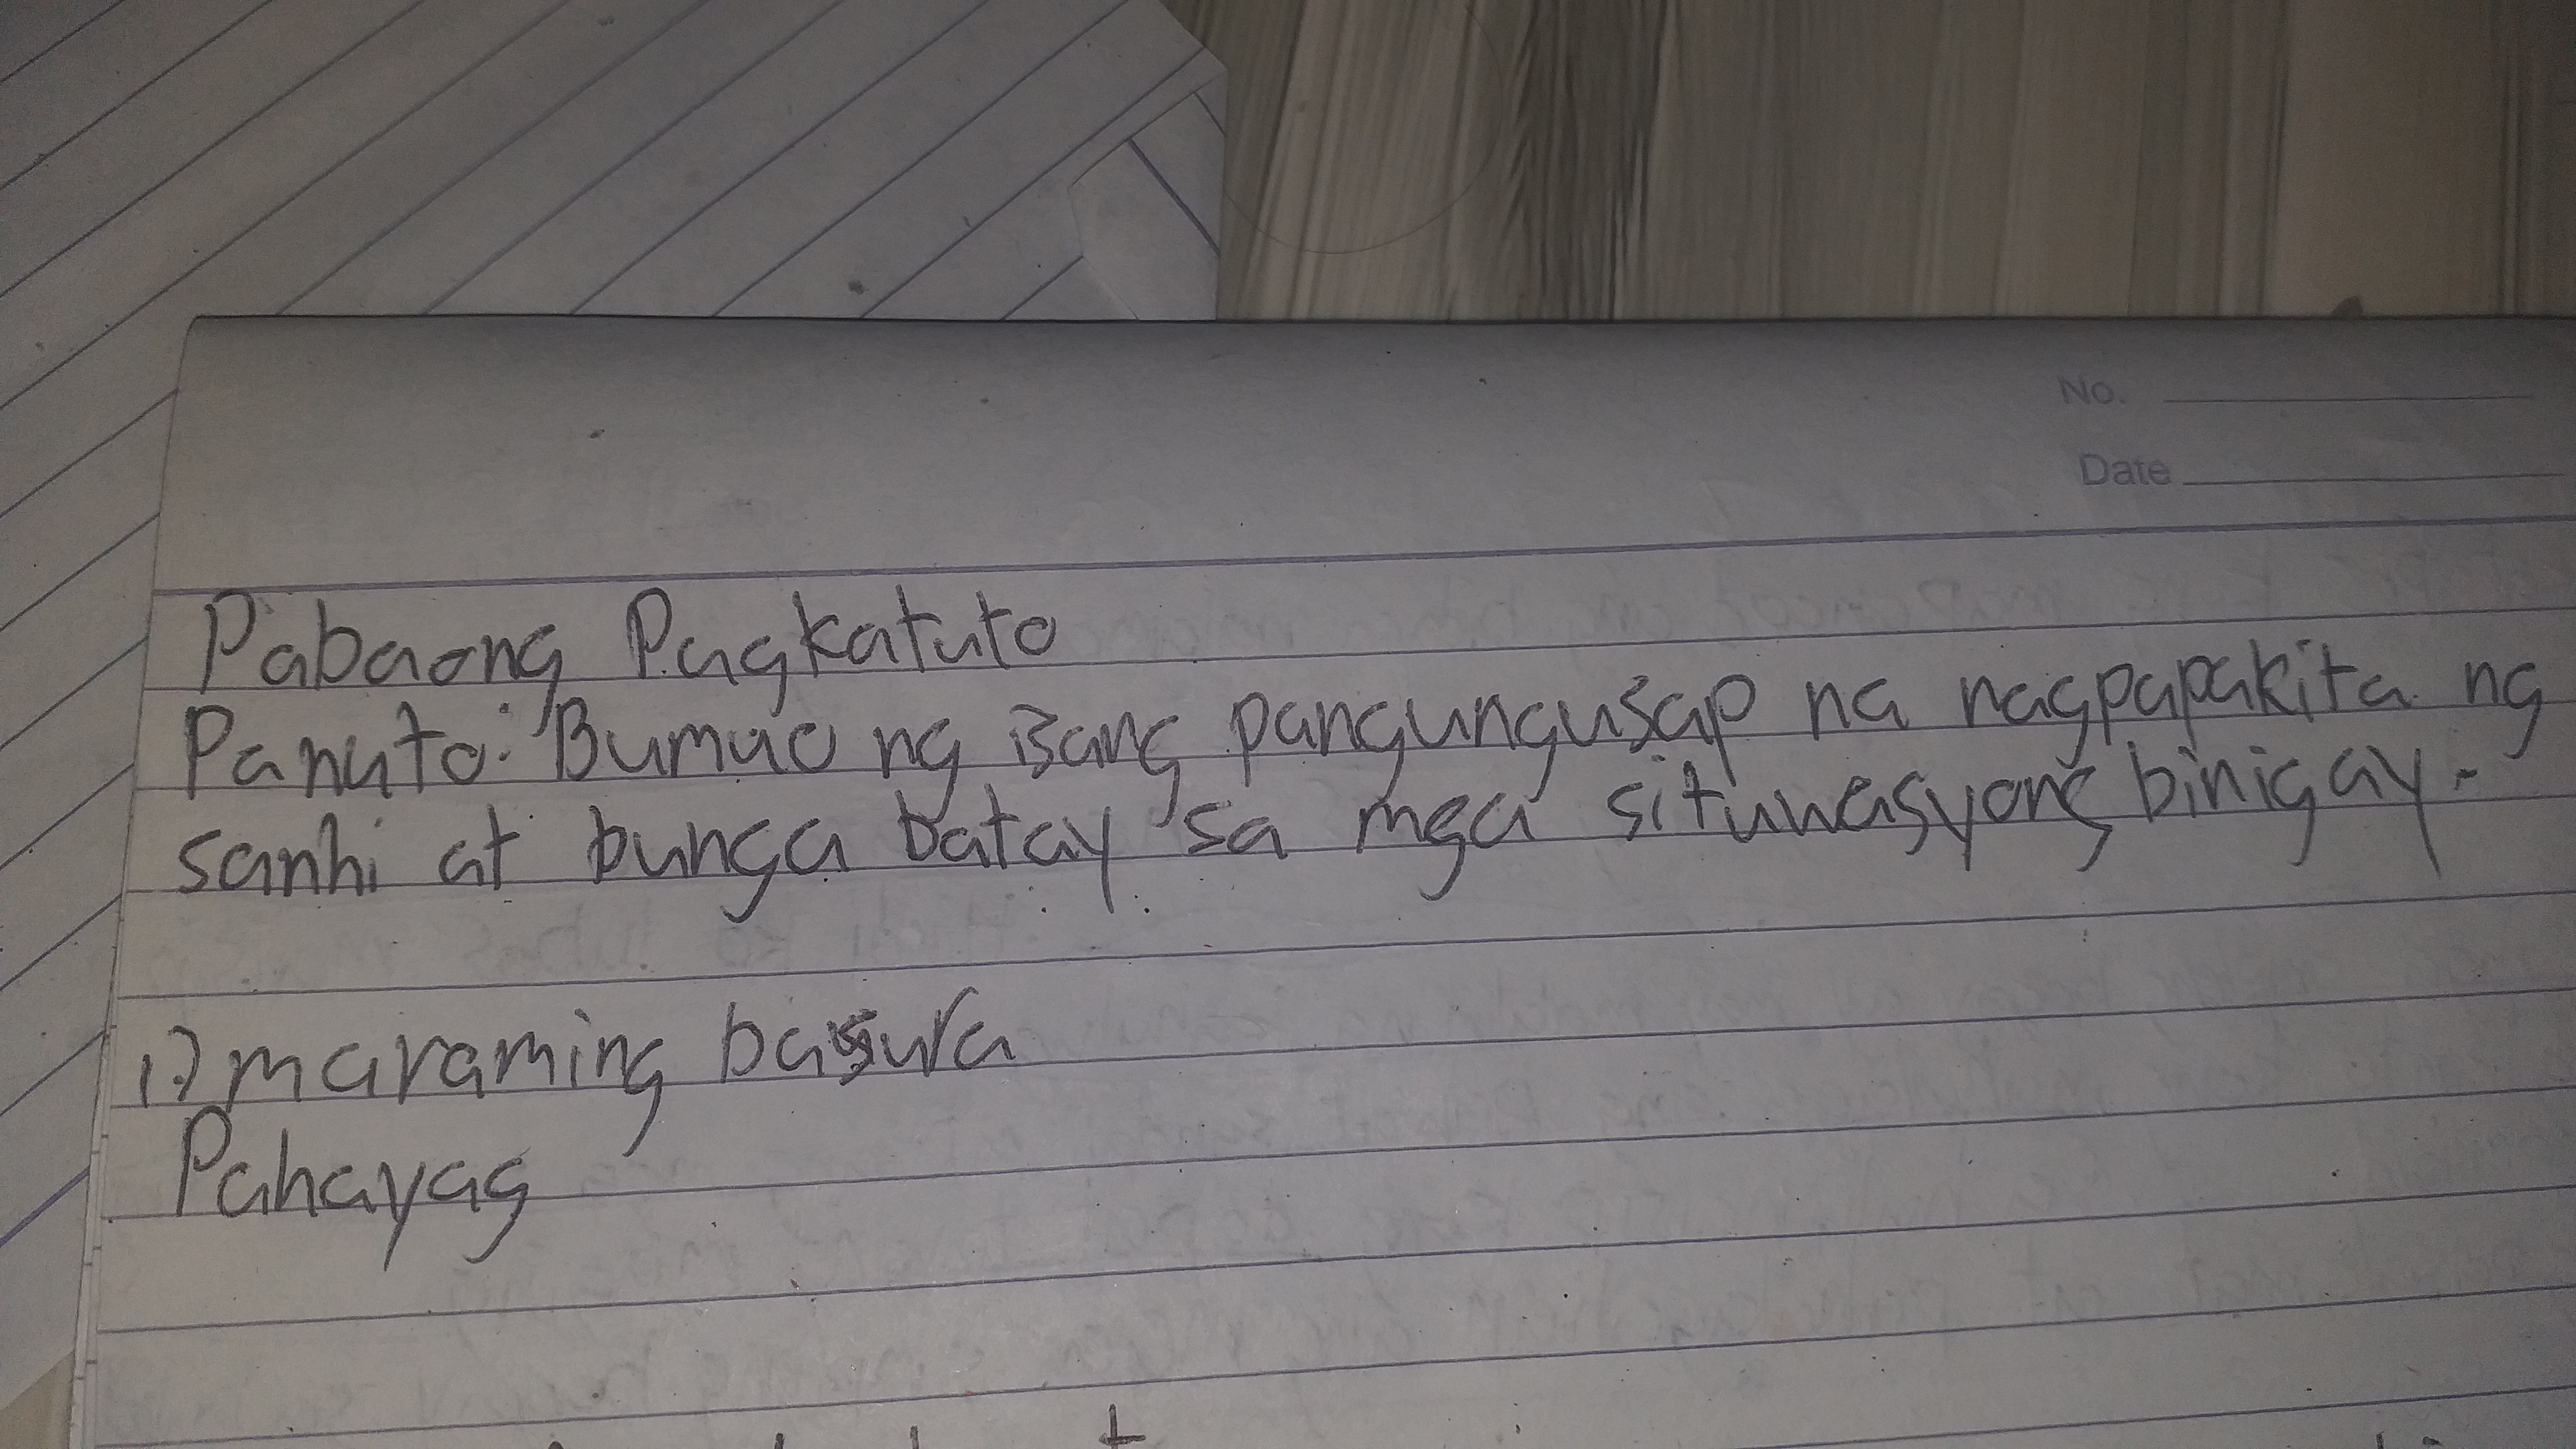 No.
Date
Pabaong Pagkatuto
Panuto: Bumuo ng isang pangungusap na nagpapakita ng
sanhi at bunga batay sa mga sitwasyong binigay.
1.) maraming basura
Pahayag